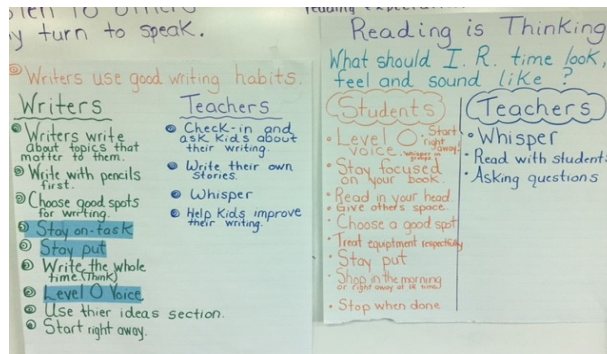 to others
turn to speak.
Writers use good writing habits.
Writers
Writers write
about topics that
matter to them.
Write with pencils
first.
Choose good spots
for writing.
Stay on-task
Stay put
Write the whole
time. (Think)
Level 0 Voice
Use thier ideas section.
Start right away.
Teachers
Check-in and
ask kids about
their writing.
Write their own
stories.
Whisper
Help kids improve
their writing.
Reading is Thinking
What should I.R. time look,
feel and sound like?
Students
Level 0 voice. Start right away.
Stay focused
on your book.
Read in your head.
Give others space.
Choose a good spot
Treat equiptment respectfully
Stay put
Shop in the morning
or right away at
Stop when done
Teachers
Whisper
Read with students
Asking questions